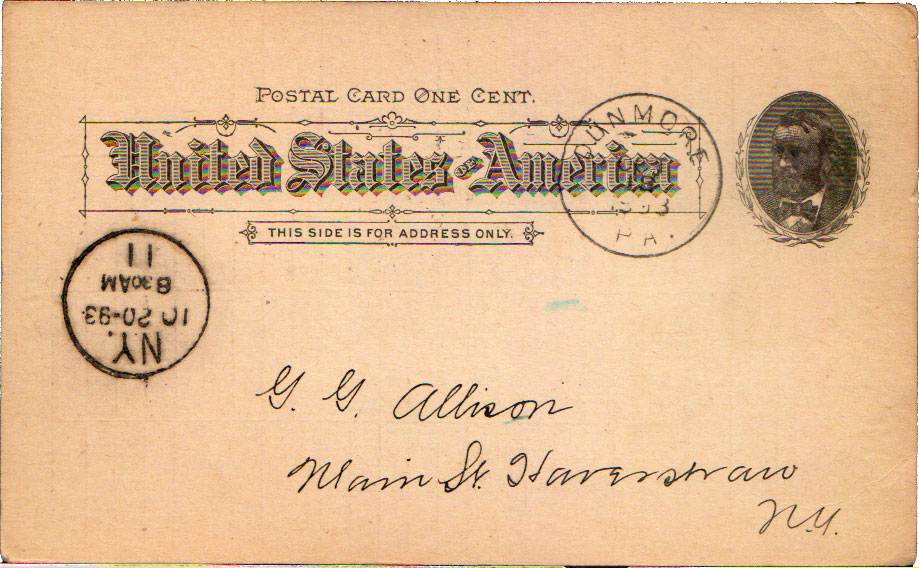 POSTAL CARD ONE CENT.
United States OF America
THIS SIDE IS FOR ADDRESS ONLY.
DUNMORE
1893
PA.
NY.
10 20-93
830AM
11
G. G. Allison
Main St. Haverstraw
N.Y.